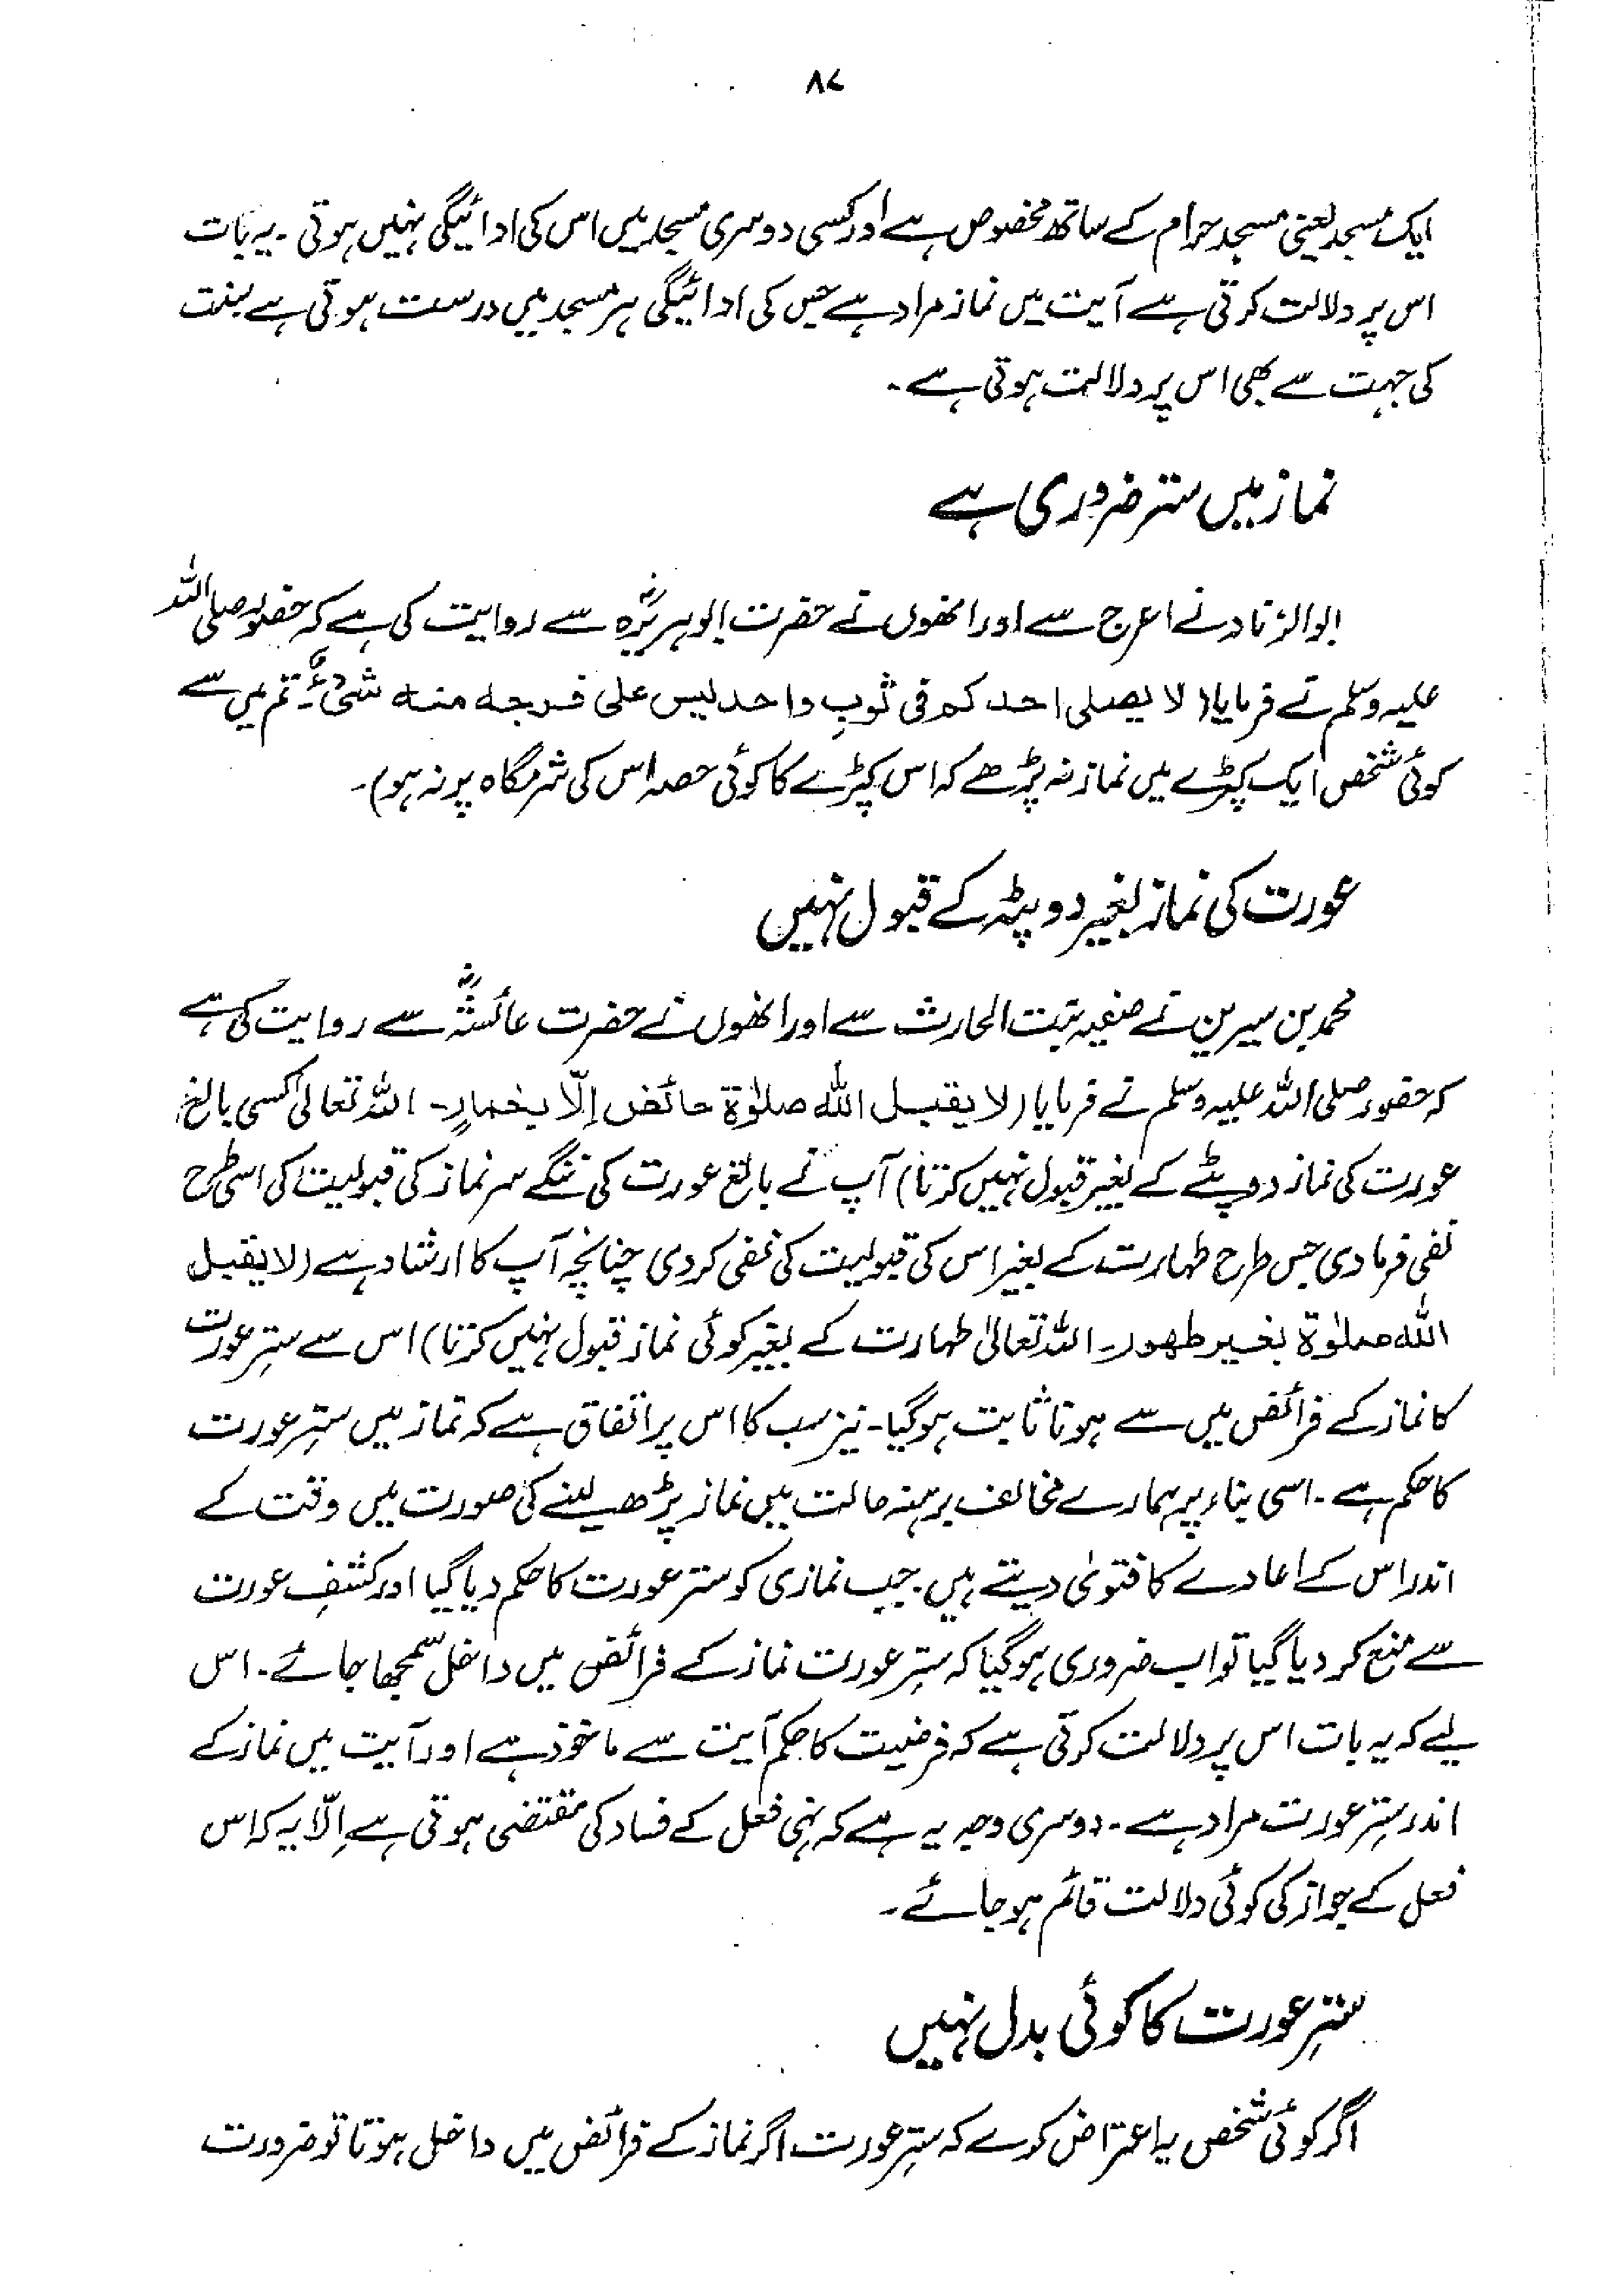 ۸۷
ایک مسجد یعنی مسجد حرام کے ساتھ مخصوص ہے اور کسی دوسری مسجد میں اس کی ادائیگی نہیں ہوتی ۔ یہ بات
اس پر دلالت کرتی ہے آیت میں نماز مراد ہے جس کی ادائیگی ہر مسجد میں درست ہوتی ہے سنت
کی جہت سے بھی اس پر دلالت ہوتی ہے ۔
نماز میں ستر ضروری ہے
ابوالزناد نے اعرج سے اور انھوں نے حضرت ابو ہریرہؓ سے روایت کی ہے کہ حضور صلی اللہ
علیہ وسلم نے فرمایا (لا یصلی احدکم فی ثوبٍ واحد لیس علی فرجہ منہ شیٔ ۔ تم میں سے
کوئی شخص ایک کپڑے میں نماز نہ پڑھے کہ اس کپڑے کا کوئی حصہ اس کی شرمگاہ پر نہ ہو) ۔
عورت کی نماز بغیر دوپٹہ کے قبول نہیں
محمد بن سیرین نے صفیہ بنت الحارث سے اور انھوں نے حضرت عائشہؓ سے روایت کی ہے
کہ حضور صلی اللہ علیہ وسلم نے فرمایا (لا یقبل اللہ صلوٰۃ حائض اِلّا بخمارٍ ۔ اللہ تعالیٰ کسی بالغ
عورت کی نماز دوپٹے کے بغیر قبول نہیں کرتا) آپ نے بالغ عورت کی ننگے سر نماز کی قبولیت کی اسی طرح
نفی فرمادی جس طرح طہارت کے بغیر اس کی قبولیت کی نفی کردی چنانچہ آپ کا ارشاد ہے (لا یقبل
اللہ صلوٰۃ بغیر طھور ۔ اللہ تعالیٰ طہارت کے بغیر کوئی نماز قبول نہیں کرتا) اس سے سترِ عورت
کا نماز کے فرائض میں سے ہونا ثابت ہوگیا ۔ نیز سب کا اس پر اتفاق ہے کہ نماز میں سترِ عورت
کا حکم ہے ۔ اسی بناء پر ہمارے مخالف برہنہ حالت میں نماز پڑھ لینے کی صورت میں وقت کے
اندر اس کے اعادے کا فتویٰ دیتے ہیں ۔ جب نمازی کو ستر عورت کا حکم دیا گیا اور کشفِ عورت
سے منع کر دیا گیا تو اب ضروری ہوگیا کہ سترِ عورت نماز کے فرائض میں داخل سمجھا جائے ۔ اس
لیے کہ یہ بات اس پر دلالت کرتی ہے کہ فرضیت کا حکم آیت سے ماخوذ ہے اور آیت میں نماز کے
اندر سترِ عورت مراد ہے ۔ دوسری وجہ یہ ہے کہ نہی فعل کے فساد کی مقتضی ہوتی ہے اِلّا یہ کہ اس
فعل کے جواز کی کوئی دلالت قائم ہو جائے ۔
سترِ عورت کا کوئی بدل نہیں
اگر کوئی شخص یہ اعتراض کرے کہ سترِ عورت اگر نماز کے فرائض میں داخل ہوتا تو ضرورت